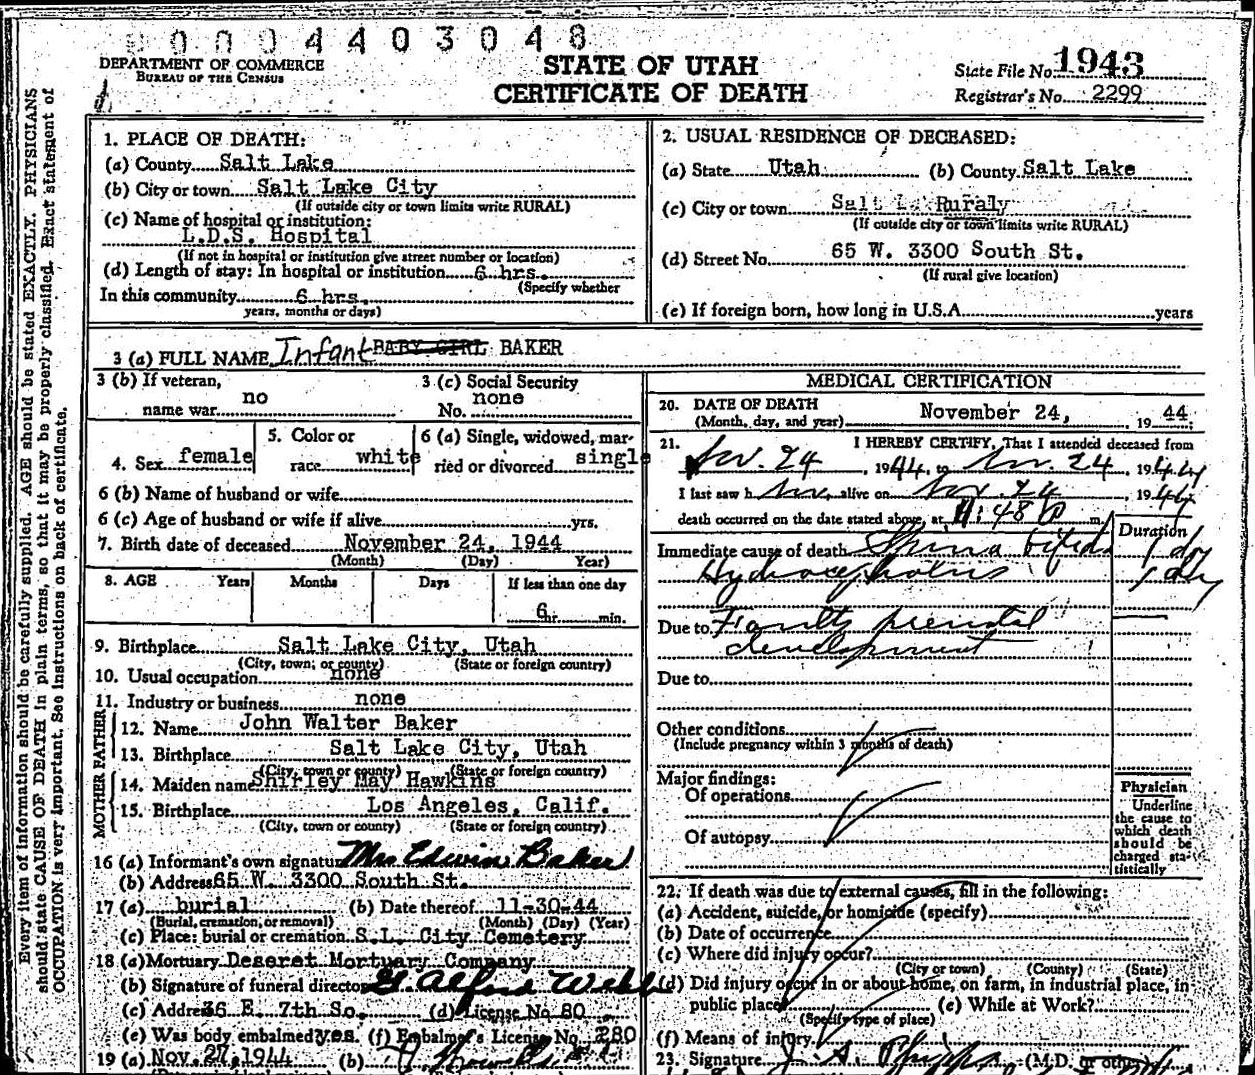 00004403048
DEPARTMENT OF COMMERCE
BUREAU OF THE CENSUS
STATE OF UTAH
CERTIFICATE OF DEATH
State File No. 1943
Registrar's No. 2299
Every item of information should be carefully supplied. AGE should be stated EXACTLY. PHYSICIANS
should state CAUSE OF DEATH in plain terms, so that it may be properly classified. Exact statement of
OCCUPATION is very important. See instructions on back of certificate.
1. PLACE OF DEATH:
(a) County Salt Lake
(b) City or town Salt Lake City
(If outside city or town limits write RURAL)
(c) Name of hospital or institution:
L.D.S. Hospital
(If not in hospital or institution give street number or location)
(d) Length of stay: In hospital or institution 6 hrs.
(Specify whether
In this community 6 hrs.
years, months or days)
2. USUAL RESIDENCE OF DECEASED:
(a) State Utah (b) County Salt Lake
(c) City or town Salt La Rural
(If outside city or town limits write RURAL)
(d) Street No. 65 W. 3300 South St.
(If rural give location)
(e) If foreign born, how long in U.S.A. years
3 (a) FULL NAME Infant BABY GIRL BAKER
3 (b) If veteran, name war no
3 (c) Social Security No. none
4. Sex female
5. Color or race white
6 (a) Single, widowed, married or divorced single
6 (b) Name of husband or wife
6 (c) Age of husband or wife if alive yrs.
7. Birth date of deceased November 24, 1944
(Month) (Day) Year)
8. AGE Years Months Days If less than one day
6 hr. min.
9. Birthplace Salt Lake City, Utah
(City, town, or county) (State or foreign country)
10. Usual occupation none
11. Industry or business none
FATHER
12. Name John Walter Baker
13. Birthplace Salt Lake City, Utah
(City, town or county) (State or foreign country)
MOTHER
14. Maiden name Shirley May Hawkins
15. Birthplace Los Angeles, Calif.
(City, town or county) (State or foreign country)
16 (a) Informant's own signature Mrs Edwin Baker
(b) Address 65 W. 3300 South St.
17 (a) burial (b) Date thereof 11-30-44
(Burial, cremation, or removal) (Month) (Day) (Year)
(c) Place: burial or cremation S.L. City Cemetery
18 (a) Mortuary Deseret Mortuary Company
(b) Signature of funeral director G. Alfred Webb
(c) Address 36 E. 7th So. (d) License No. 80
(e) Was body embalmed yes. (f) Embalmer's License No. 280
19 (a) Nov. 27, 1944 (b)
MEDICAL CERTIFICATION
20. DATE OF DEATH
(Month, day, and year) November 24, 19 44;
21. I HEREBY CERTIFY, That I attended deceased from
Nov. 24, 1944, to Nov. 24, 1944
I last saw h alive on Nov. 24, 1944
death occurred on the date stated above, at :48 P m.
Duration
Immediate cause of death Spina bifida 1 day
Hydrocephalus 1 day
Due to Faulty prenatal
development
Due to
Other conditions
(Include pregnancy within 3 months of death)
Major findings:
Of operations
Of autopsy
Physician
Underline
the cause to
which death
should be
charged sta-
tistically
22. If death was due to external causes, fill in the following:
(a) Accident, suicide, or homicide (specify)
(b) Date of occurrence
(c) Where did injury occur?
(City or town) (County) (State)
(d) Did injury occur in or about home, on farm, in industrial place, in
public place (e) While at Work?
(Specify type of place)
(f) Means of injury
23. Signature (M.D. or other)